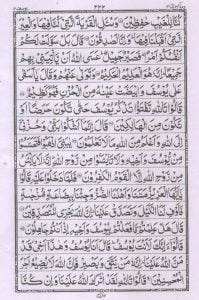 ۲۲۲
لِلْغَيْبِ حٰفِظِيْنَ وَسْئَلِ الْقَرْيَةَ الَّتِيْ كُنَّا فِيْهَا وَالْعِيْرَ
الَّتِيْ اَقْبَلْنَا فِيْهَا وَاِنَّا لَصٰدِقُوْنَ قَالَ بَلْ سَوَّلَتْ لَكُمْ
اَنْفُسُكُمْ اَمْرًا فَصَبْرٌ جَمِيْلٌ عَسَى اللّٰهُ اَنْ يَّاْتِيَنِيْ بِهِمْ
جَمِيْعًا اِنَّهٗ هُوَ الْعَلِيْمُ الْحَكِيْمُ وَتَوَلّٰى عَنْهُمْ وَقَالَ يٰاَسَفٰى
عَلٰى يُوْسُفَ وَابْيَضَّتْ عَيْنٰهُ مِنَ الْحُزْنِ فَهُوَ كَظِيْمٌ
قَالُوْا تَاللّٰهِ تَفْتَؤُا تَذْكُرُ يُوْسُفَ حَتّٰى تَكُوْنَ حَرَضًا اَوْ
تَكُوْنَ مِنَ الْهٰلِكِيْنَ قَالَ اِنَّمَا اَشْكُوْا بَثِّيْ وَحُزْنِيْ
اِلَى اللّٰهِ وَاَعْلَمُ مِنَ اللّٰهِ مَا لَا تَعْلَمُوْنَ يٰبَنِيَّ اذْهَبُوْا
فَتَحَسَّسُوْا مِنْ يُّوْسُفَ وَاَخِيْهِ وَلَا تَايْئَسُوْا مِنْ رَّوْحِ اللّٰهِ اِنَّهٗ لَا يَايْئَسُ
مِنْ رَّوْحِ اللّٰهِ اِلَّا الْقَوْمُ الْكٰفِرُوْنَ فَلَمَّا دَخَلُوْا عَلَيْهِ قَالُوْا
يٰاَيُّهَا الْعَزِيْزُ مَسَّنَا وَاَهْلَنَا الضُّرُّ وَجِئْنَا بِبِضَاعَةٍ مُّزْجٰىةٍ
فَاَوْفِ لَنَا الْكَيْلَ وَتَصَدَّقْ عَلَيْنَا اِنَّ اللّٰهَ يَجْزِي الْمُتَصَدِّقِيْنَ
قَالَ هَلْ عَلِمْتُمْ مَّا فَعَلْتُمْ بِيُوْسُفَ وَاَخِيْهِ اِذْ اَنْتُمْ جٰهِلُوْنَ
قَالُوْا ءَاِنَّكَ لَاَنْتَ يُوْسُفُ قَالَ اَنَا يُوْسُفُ وَهٰذَا اَخِيْ قَدْ
مَنَّ اللّٰهُ عَلَيْنَا اِنَّهٗ مَنْ يَّتَّقِ وَيَصْبِرْ فَاِنَّ اللّٰهَ لَا يُضِيْعُ اَجْرَ
الْمُحْسِنِيْنَ قَالُوْا تَاللّٰهِ لَقَدْ اٰثَرَكَ اللّٰهُ عَلَيْنَا وَاِنْ كُنَّا